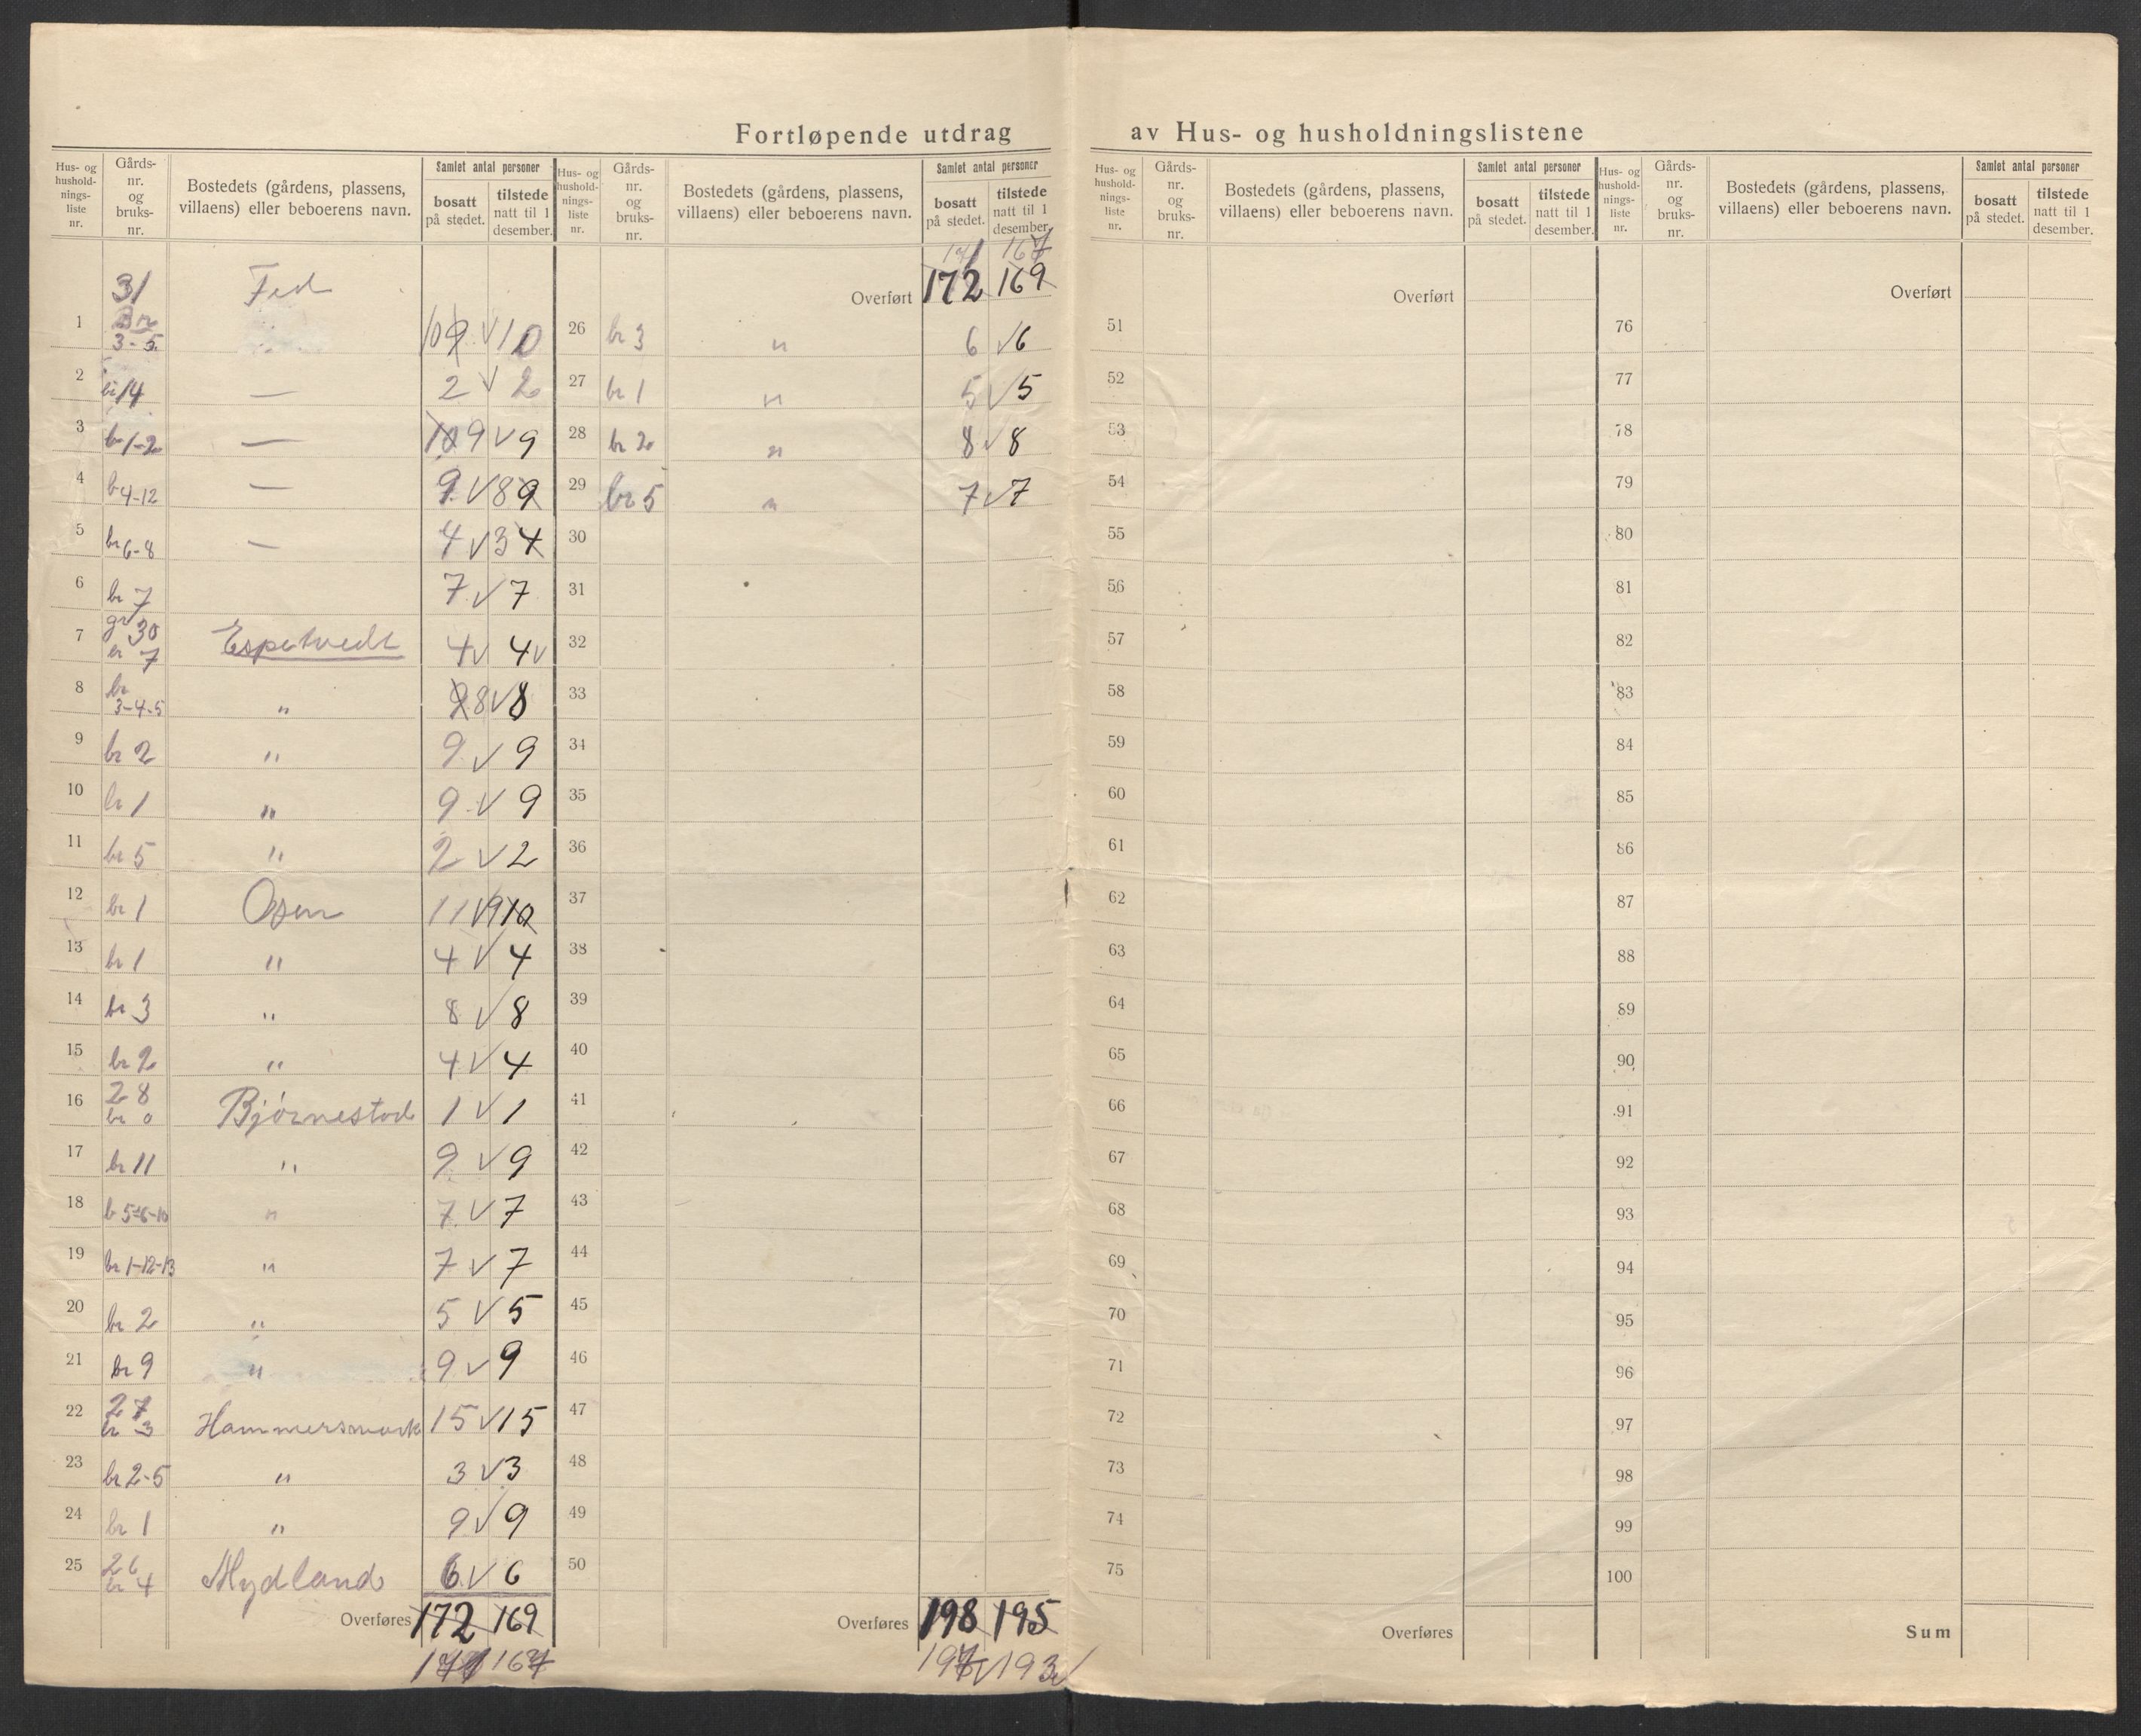 Fortløpende utdrag av Hus- og husholdningslistene
Hus- og hushold-nings-liste nr. Gårds-nr. og bruks-nr. Bostedets (gårdens, plassens, villaens) eller beboerens navn. Samlet antal personer bosatt på stedet. tilstede natt til 1 desember.
31 Fed
1 Br 3-5 10 9 √ 10
2 br 14 — 2 √ 2
3 br 1-2 — 10 9 √ 9
4 b 4-12 — 9 √ 8 9
5 br 6-8 — 4 √ 3 4
6 br 7 7 √ 7
7 gr 30 br 7 Espetvedt 4 √ 4 √
8 br 3-4-5 " 9 8 √ 8
9 br 2 " 9 √ 9
10 br 1 " 9 √ 9
11 br 5 " 2 √ 2
12 br 1 Osen 11 √ 9 10
13 br 1 " 4 √ 4
14 br 3 " 8 √ 8
15 br 2 " 4 √ 4
16 28 br 0 Bjørnestad 1 √ 1
17 br 11 " 9 √ 9
18 b 5-6-10 " 7 √ 7
19 br 1-12-13 " 7 √ 7
20 br 2 " 5 √ 5
21 br 9 " 9 √ 9
22 27 br 3 Hammersmark 15 √ 15
23 br 2-5 " 3 √ 3
24 br 1 " 9 √ 9
25 26 br 4 Mydland 6 √ 6
Overføres 172 169
171 167
Hus- og hushold-nings-liste nr. Gårds-nr. og bruks-nr. Bostedets (gårdens, plassens, villaens) eller beboerens navn. Samlet antal personer bosatt på stedet. tilstede natt til 1 desember.
171 167
Overført 172 169
26 br 3 " 6 √ 6
27 br 1 " 5 √ 5
28 br 2 " 8 √ 8
29 br 5 " 7 √ 7
30
31
32
33
34
35
36
37
38
39
40
41
42
43
44
45
46
47
48
49
50
Overføres 198 195
197 √ 193 √
Hus- og hushold-nings-liste nr. Gårds-nr. og bruks-nr. Bostedets (gårdens, plassens, villaens) eller beboerens navn. Samlet antal personer bosatt på stedet. tilstede natt til 1 desember.
Overført
51
52
53
54
55
56
57
58
59
60
61
62
63
64
65
66
67
68
69
70
71
72
73
74
75
Overføres
Hus- og hushold-nings-liste nr. Gårds-nr. og bruks-nr. Bostedets (gårdens, plassens, villaens) eller beboerens navn. Samlet antal personer bosatt på stedet. tilstede natt til 1 desember.
Overført
76
77
78
79
80
81
82
83
84
85
86
87
88
89
90
91
92
93
94
95
96
97
98
99
100
Sum